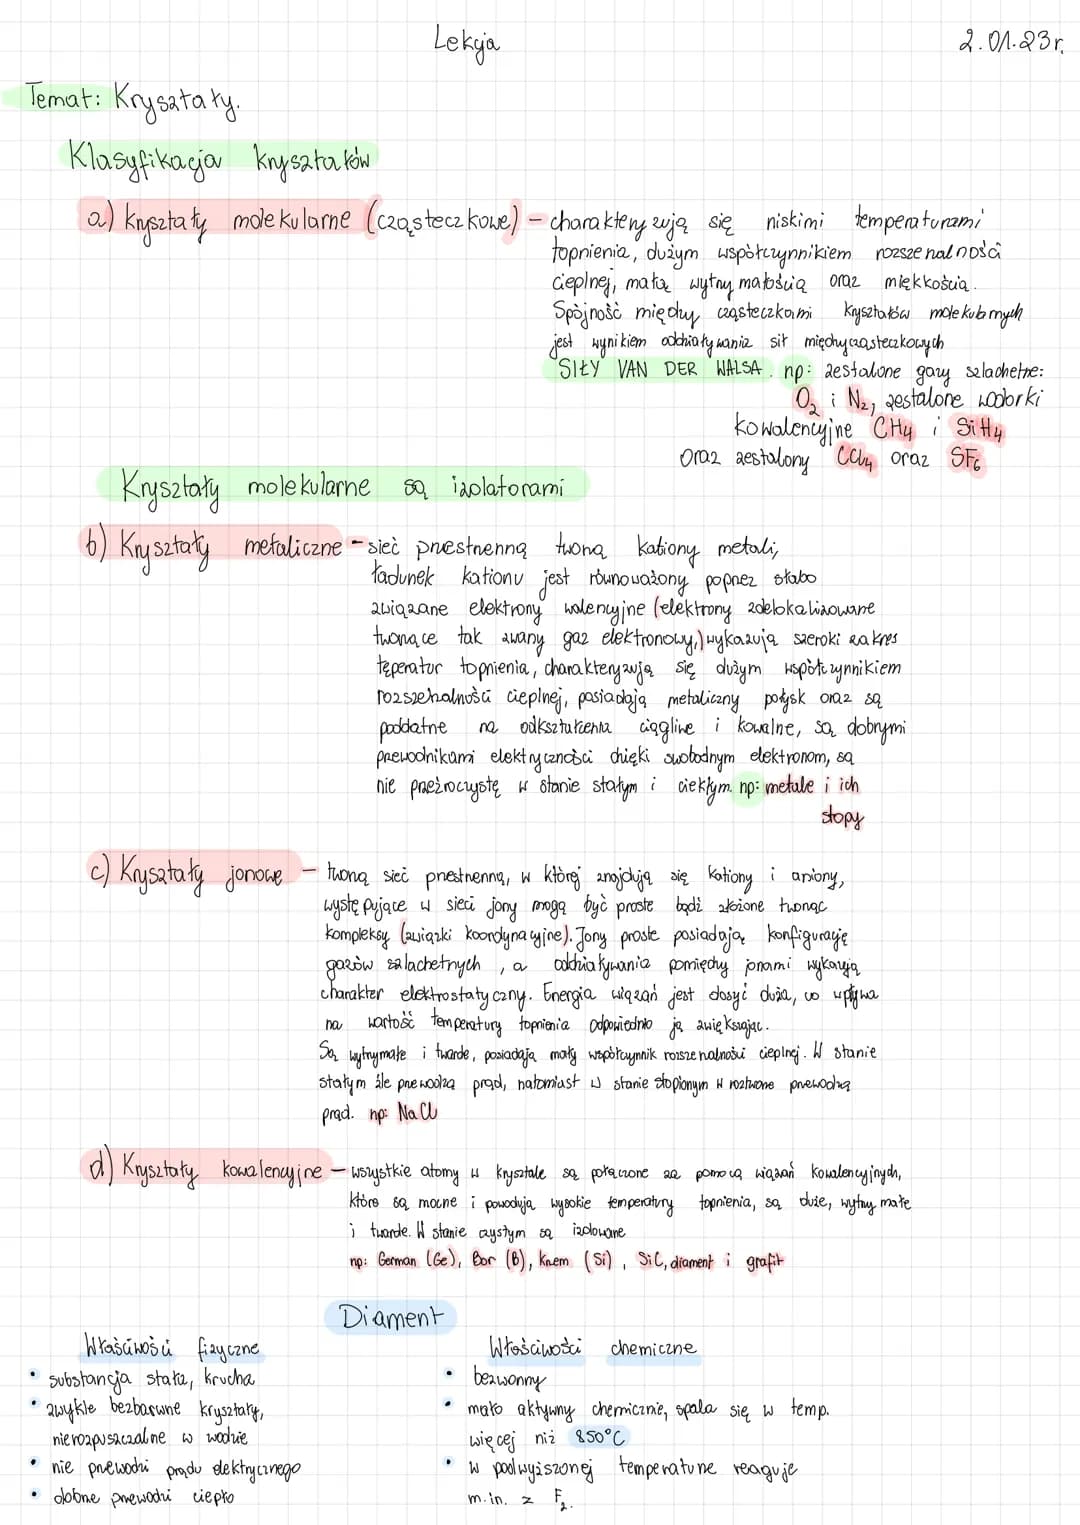 Lekcja 2.01.23r.
Temat: Kryształy.
Klasyfikacja kryształów
a) kryształy molekularne (cząsteczkowe) - charakteryzują się niskimi temperaturami
topnienia, dużym współczynnikiem rozszenalności
cieplnej, małą wytrymałością oraz miękkością.
Spójność między cząsteczkami kryształów molekularnych
jest wynikiem oddziaływania sił międzycząsteczkowych
SIŁY VAN DER WALSA. np: zestalone gazy szlachetne:
O₂ i N₂, zestalone wodorki
kowalencyjne CH₄ i SiH₄
oraz zestalony CCl₄ oraz SF₆
Kryształy molekularne są izolatorami
b) Kryształy metaliczne - sieć przestrzenną tworzą kationy metali,
ładunek kationu jest równoważony poprzez słabo
związane elektrony walencyjne (elektrony zdelokalizowane
tworzące tak zwany gaz elektronowy,) wykazują szeroki zakres
teperatur topnienia, charakteryzują się dużym współczynnikiem
rozszerzalności cieplnej, posiadają metaliczny połysk oraz są
poddatne na odkształcenia ciągliwe i kowalne, są dobrymi
przewodnikami elektryczności dzięki swobodnym elektronom, są
nie przeźroczystę w stanie stałym i ciekłym. np: metale i ich
stopy
c) Kryształy jonowe - tworzą sieć przestrzenną, w której znajdują się kationy i aniony,
występujące w sieci jony mogą być proste bądź złożone tworząc
kompleksy (związki koordynacyjne). Jony proste posiadają konfigurację
gazów szlachetnych, a oddziaływania pomiędzy jonami wykazują
charakter elektrostatyczny. Energia wiązań jest dosyć duża, co wpływa
na wartość temperatury topnienia odpowiednio ją zwiększając.
Są wytrymałe i twarde, posiadają mały współczynnik rozszerzalności cieplnej. W stanie
stałym źle przewodzą prąd, natomiast w stanie stopionym w roztworze przewodzą
prąd. np: NaCl
d) Kryształy kowalencyjne - wszystkie atomy w krysztale są połączone za pomocą wiązań kowalencyjnych,
które są mocne i powodują wysokie temperatury topnienia, są duże, wytrymałe
i twarde. W stanie czystym są izolowane
np: German (Ge), Bor (B), Krzem (Si), SiC, diament i grafit
Diament
Właściwości fizyczne
• substancja stała, krucha
• zwykle bezbarwne kryształy,
nierozpuszczalne w wodzie
• nie przewodzi prądu elektrycznego
• dobrze przewodzi ciepło
Właściwości chemiczne
• bezwonny
• mało aktywny chemicznie, spala się w temp.
więcej niż 850°C
• w podwyższonej temperaturze reaguje
m.in. z F₂.